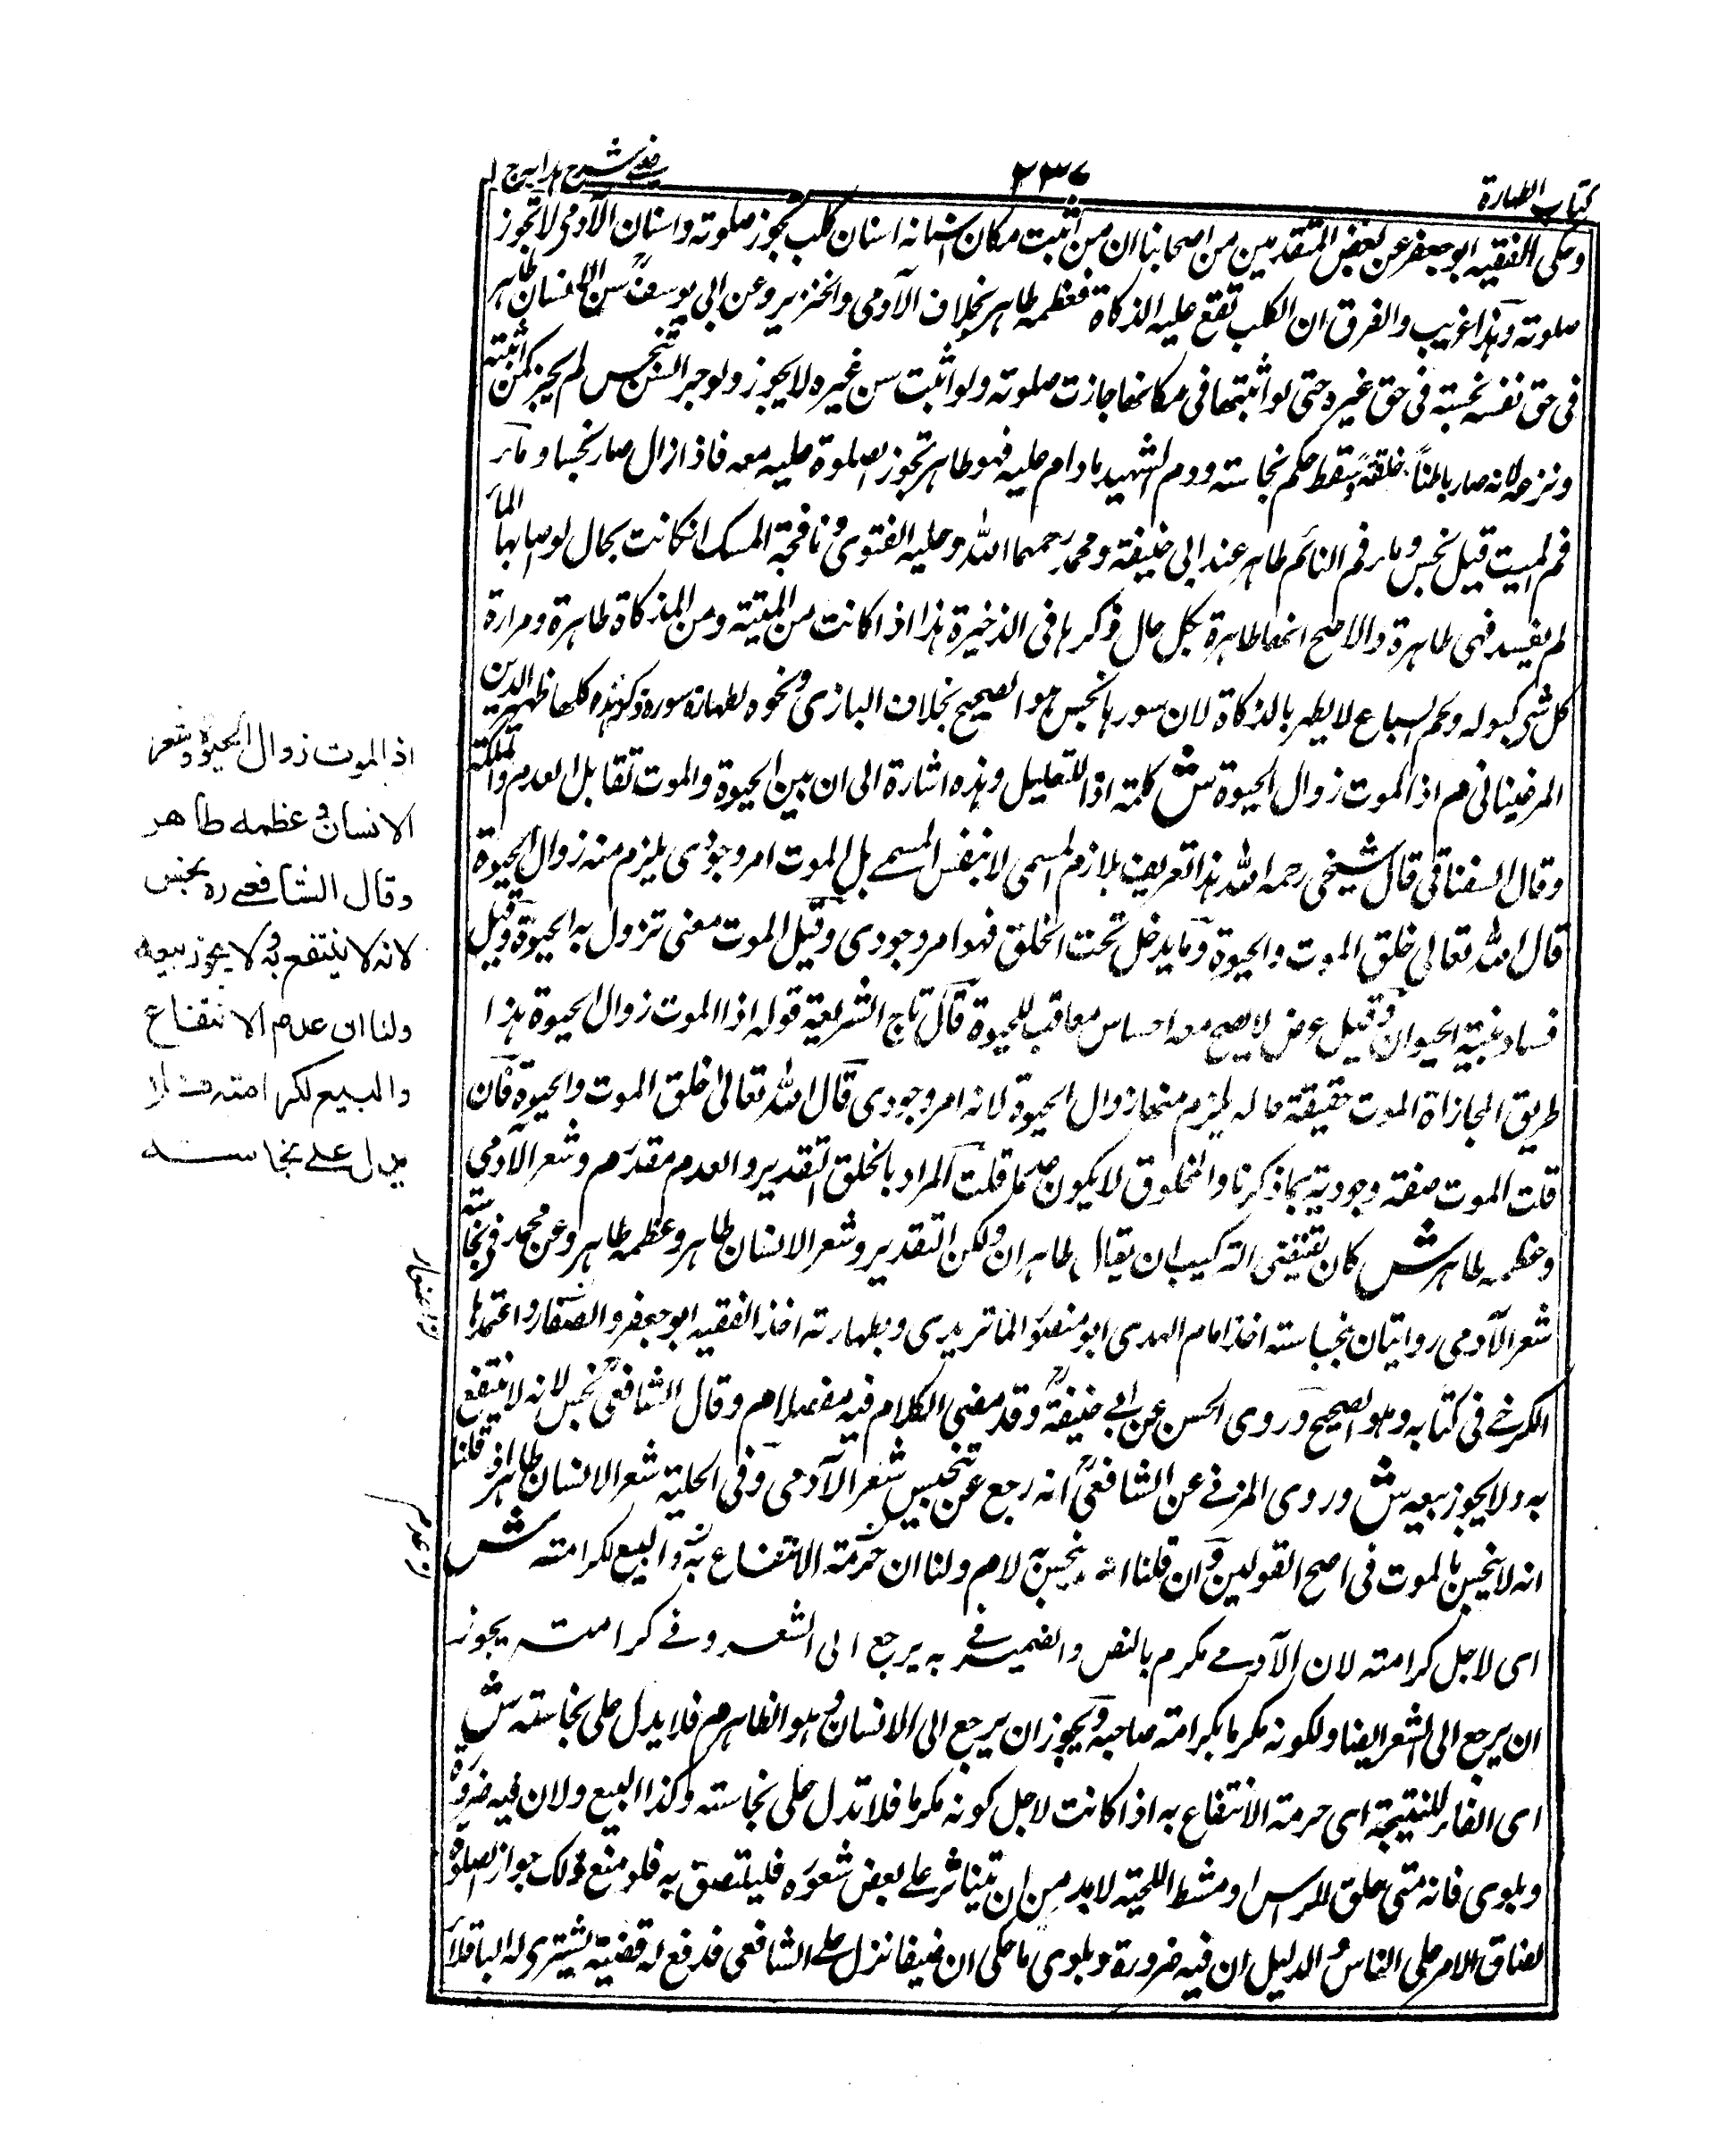 كتاب الطهارة
٢٣٧
عينى شرح هدايه ج ١
وحكى الفقيه ابو جعفر عن بعض المتقدمين من اصحابنا ان من اثبت مكان اسنانه اسنان كلب تجوز صلوته واسنان الآدمى لا تجوز
صلوته وهذا غريب والفرق ان الكلب تقع عليه الذكاة فعظمه طاهر بخلاف الآدمى والخنزير وعن ابى يوسف سن الانسان طاهر
فى حق نفسه نجسة فى حق غيره حتى لو اثبتها فى مكانها جازت صلوته ولو اثبت سن غيره لا يجوز ولو جبر السن بنجس لم يجبر كمن اثبته
ونزعه لانه صار باطنا خلقة وسقط حكم نجاسته ودم الشهيد ما دام عليه فهو طاهر تجوز الصلوة عليه معه فاذا زال صار نجسا وماء
فم الميت قيل نجس وماء فم النائم طاهر عند ابى حنيفة ومحمد رحمهما الله وعليه الفتوى ونافجة المسك ان كانت بحال لو اصابها الماء
لم يفسد فهى طاهرة والاصح انها طاهرة بكل حال ذكرها فى الذخيرة هذا اذا كانت من الميتة ومن المذكاة طاهرة ومرارة
كل شئ كبوله ولحم السباع لا يطهر بالذكاة لان سورها نجس هو الصحيح بخلاف البازى ونحوه لطهارة سوره ذكر هذه كلها ظهير الدين
المرغينانى م اذ الموت زوال الحيوة ش كلمة اذ للتعليل وهذه اشارة الى ان بين الحيوة والموت تقابل العدم والملكة
وقال السغناقى قال شيخى رحمه الله هذا تعريف بلازم المسمى لا بنفس المسمى بل الموت امر وجودى يلزم منه زوال الحيوة
قال الله تعالى خلق الموت والحيوة وما يدخل تحت الخلق فهو امر وجودى وقيل الموت معنى تزول به الحيوة وقيل
فساد بنية الحيوان وقيل عرض لا يصح معه احساس معاقب للحيوة قال تاج الشريعة قوله اذا الموت زوال الحيوة هذا
طريق المجازاة الموت حقيقة حاله يلزم منها زوال الحيوة لانه امر وجودى قال الله تعالى خلق الموت والحيوة فان
قلت الموت صفة وجودية بما ذكرنا والمخلوق لا يكون عدما قلت المراد بالخلق التقدير والعدم مقدر م وشعر الآدمى
وعظمه طاهر ش كان يقتضى التركيب ان يقال طاهران ولكن التقدير وشعر الانسان طاهر وعظمه طاهر وعن محمد فى نجاسة
شعر الآدمى روايتان بنجاسته اخذ امام الهدى ابو منصور الماتريدى وبطهارته اخذ الفقيه ابو جعفر والصفار واعتمدها
الكرخى فى كتابه وهو الصحيح وروى الحسن عن ابى حنيفة وقد مضى الكلام فيه مفصلا م وقال الشافعى نجس لانه لا ينتفع
به ولا يجوز بيعه ش وروى المزنى عن الشافعى انه رجع عن تنجيس شعر الآدمى وفى الحلية شعر الانسان طاهر اذ قلنا
انه لا ينجس بالموت فى اصح القولين وان قلنا انه ينجس به لا م ولنا ان حرمة الانتفاع به والبيع لكرامته ش
اى لاجل كرامته لان الآدمى مكرم بالنص والضمير فى به يرجع الى الشعر وفى كرامته يجوز
ان يرجع الى الشعر ايضا ولكونه مكرما بكرامة صاحبه ويجوز ان يرجع الى الانسان وهو الظاهر م فلا يدل على نجاسته ش
اى الفاء للنتيجة اى حرمة الانتفاع به اذا كانت لاجل كونه مكرما فلا تدل على نجاسته وكذا البيع ولان فيه ضرورة
وبلوى فانه متى حلق الراس او مشط اللحية لا بد من ان يتناثر على بعض شعوره فيلتصق به فلو منع ذلك جواز الصلوة
لضاق الامر على الناس والدليل ان فيه ضرورة وبلوى ما حكى ان ضيفا نزل على الشافعى فدفع له قضية يشترى له الباقلاء
اذ الموت زوال الحيوة وشعر
الانسان وعظمه طاهر
وقال الشافعى ره نجس
لانه لا ينتفع به ولا يجوز بيعه
ولنا ان عدم الانتفاع
والبيع لكرامته فلا
يدل على نجاسته
ن عدم